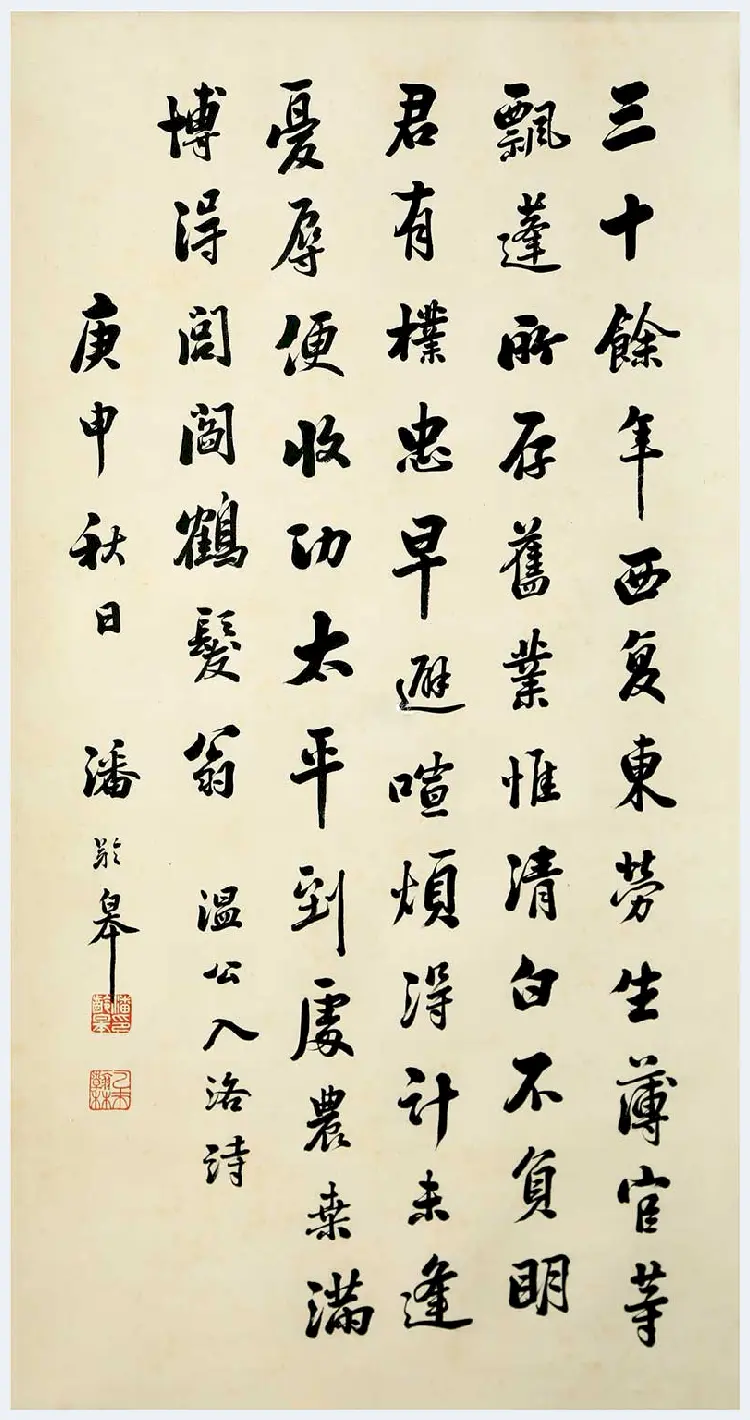 三十餘年西复東勞生薄宦等
飄蓬所存舊業惟清白不負明
君有樸忠早避喧煩得計未逢
憂辱便收功太平到處農桒滿
博得閭閻鶴髮翁 温公入洛詩
庚申秋日 潘齡皋
潘齡皋印
乙未翰林